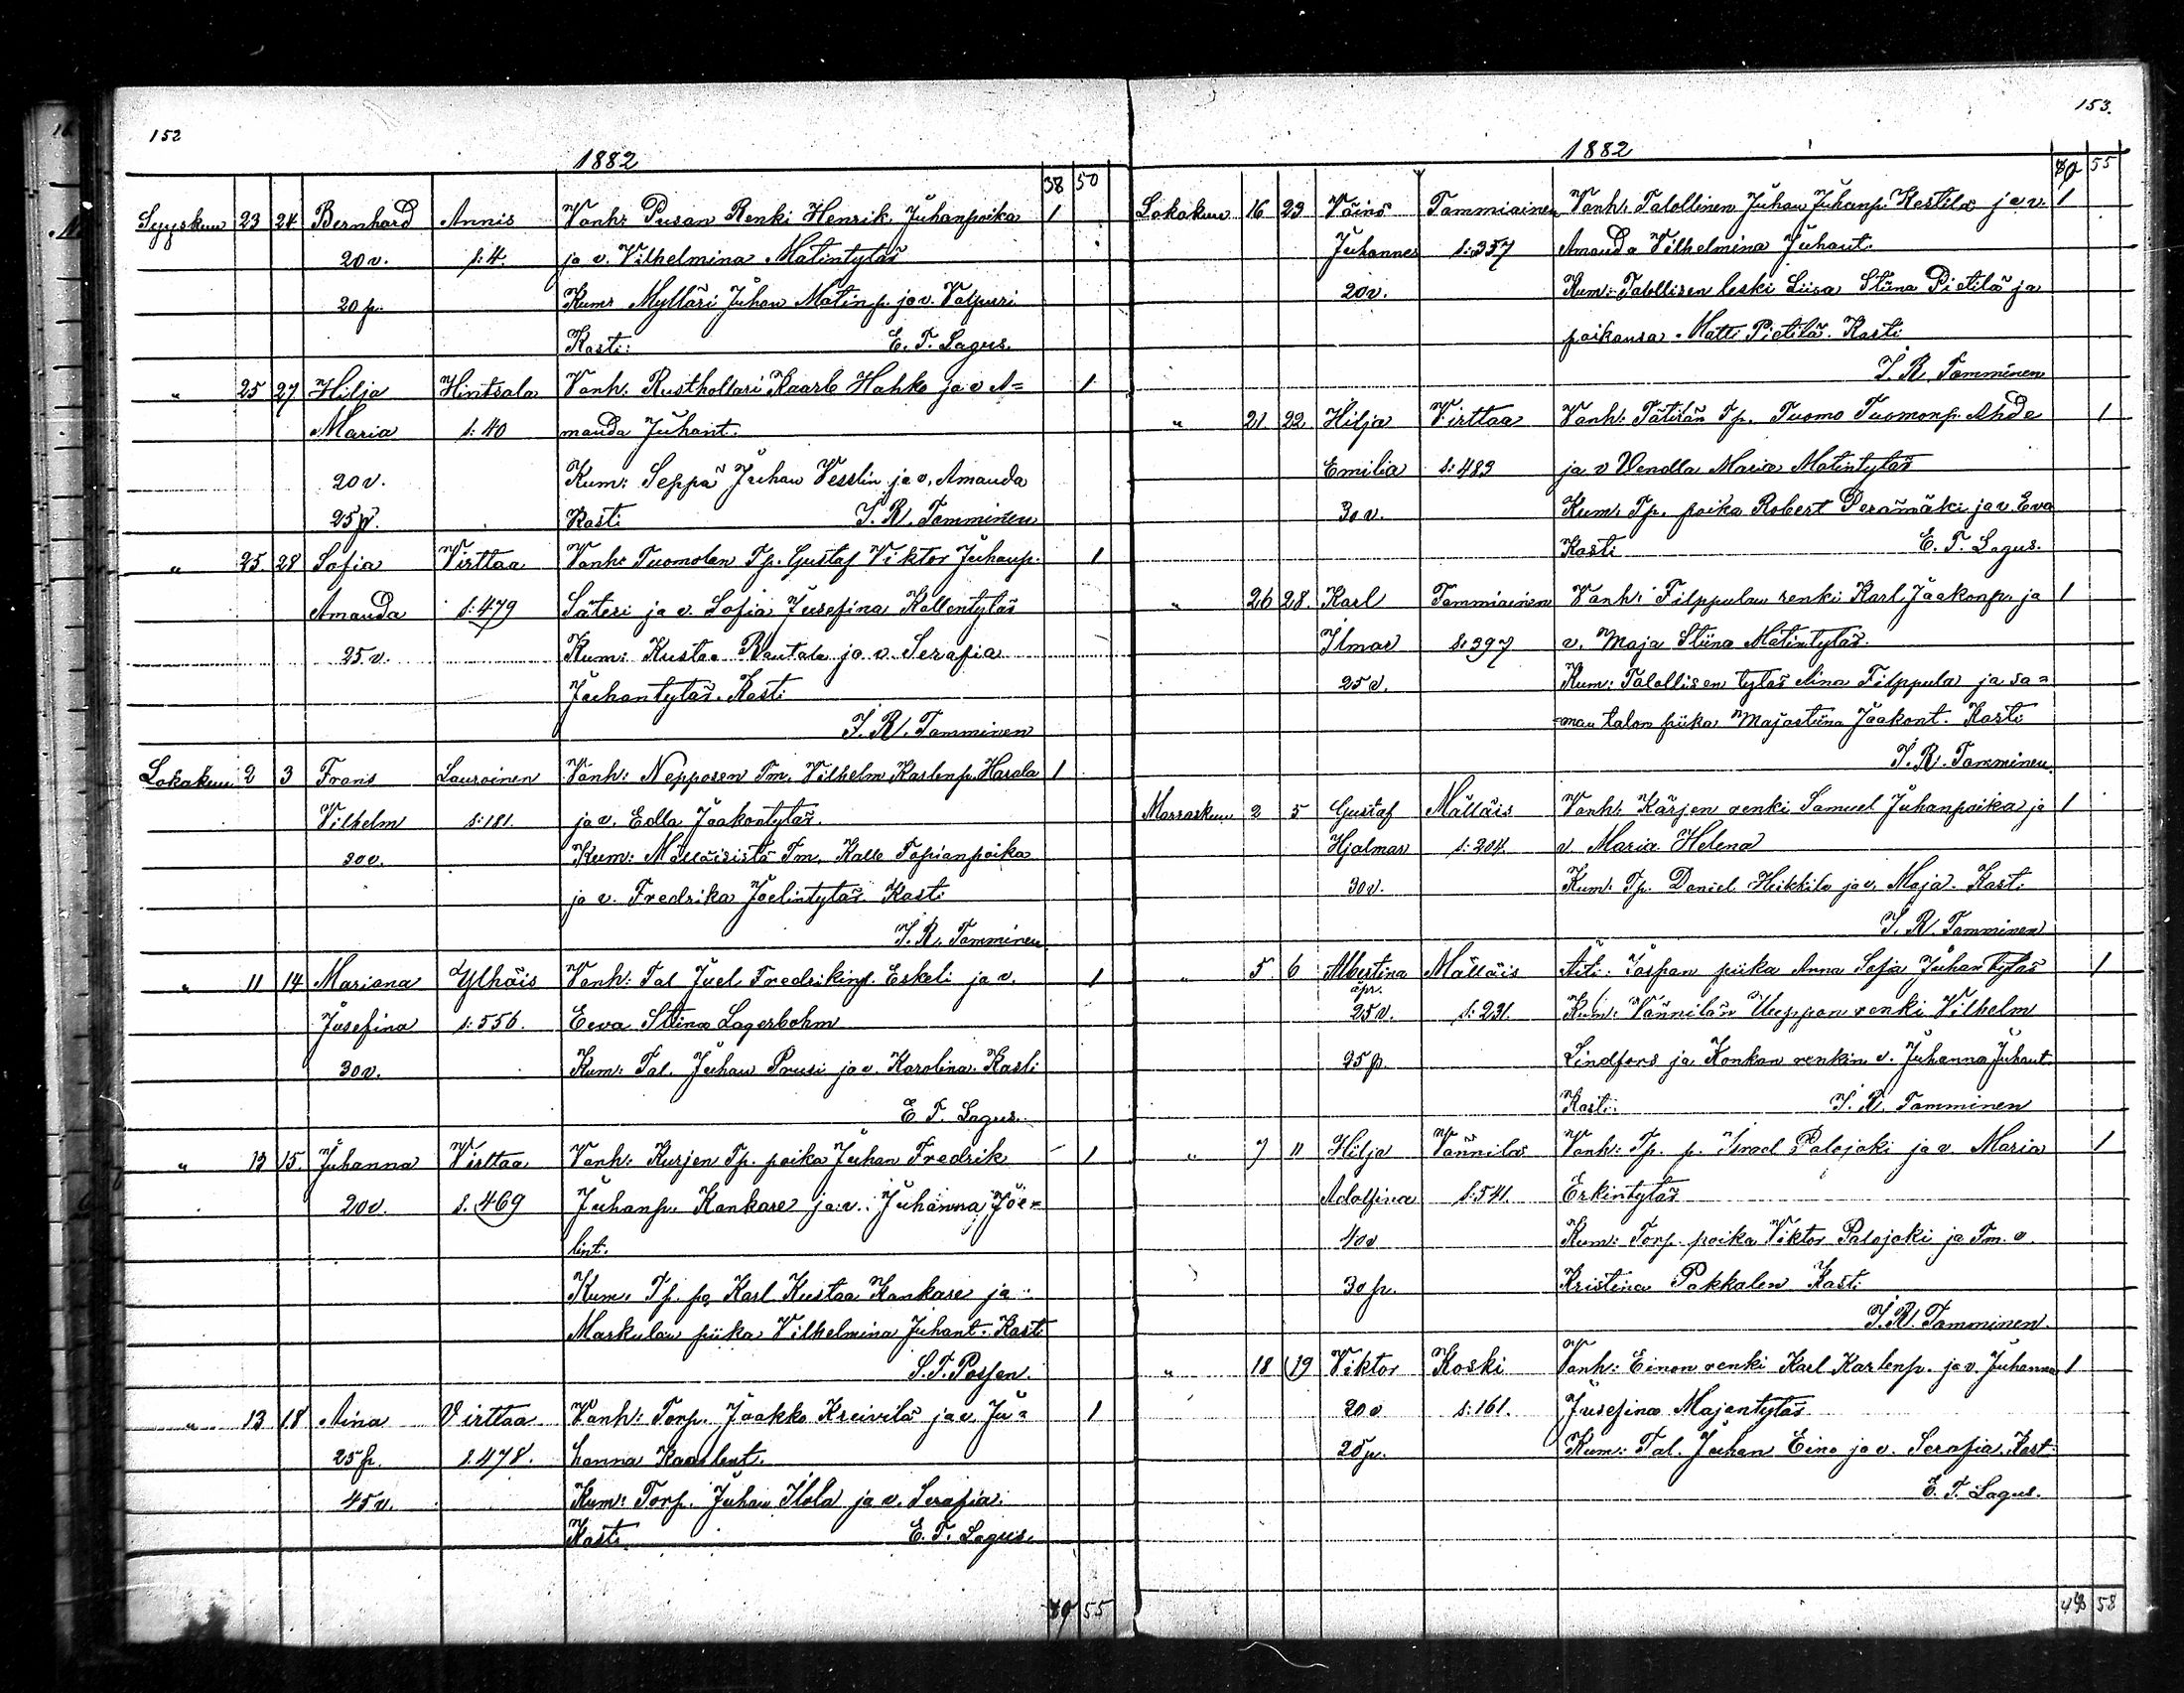 152
1882
38 50
Syyskuu 23 24 Bernhard Annis Vanh: Pusan Renki Henrik Juhanpoika 1
20 v. s: 4. ja v. Vilhelmina Matintytär
20 p. Kum: Mylläri Juhan Matinp. ja v. Valpuri
Kasti: E. F. Lagus.
" 25 27 Hilja Hintsala Vanh. Rusthollari Kaarle Hahko ja v A= 1
Maria s: 40 manda Juhant.
20 v. Kum: Seppä Juhan Vesslin ja v. Amanda
25 p. Kasti J. R. Tamminen
" 25 28 Sofia Virttaa Vanh: Tuomolan Tp. Gustaf Viktor Juhanp. 1
Amanda s: 479 Säteri ja v. Sofia Josefina Kallentytär
25 v. Kum: Kustaa Rautala ja v. Serafia
Juhantytär. Kasti
J. R. Tamminen
Lokakuu 2 3 Frans Lauroinen Vanh: Nepposen Tm. Vilhelm Karlenp. Harala 1
Vilhelm s: 181. ja v. Edla Jaakontytär.
30 v. Kum: Mälläisistä Tm. Kalle Topianpoika
ja v. Fredrika Joelintytär. Kasti
J. R. Tamminen
" 11 14 Mariana Ylhäis Vanh: Tal Juel Fredrikinp. Eskeli ja v. 1
Josefina s: 556. Eeva Stina Lagerbohm
30 v. Kum: Tal. Juhan Prusi ja v. Karolina. Kasti
E F. Lagus.
" 13 15. Juhanna Virttaa Vanh: Kurjen Tp. poika Juhan Fredrik 1
20 v. s. 469 Juhanp. Kankare ja v. Juhanna Joe=
lint.
Kum. Tp. po. Karl Kustaa Kankare ja
Markulan piika Vilhelmina Juhant. Kasti
S. F. Possen.
" 13 18 Aina Virttaa Vanh: Torp. Jaakko Kreivilä ja v. Ju= 1
25 p. s. 478. hanna Kaarlent.
45 v. Kum: Torp. Juhan Ilola ja v. Serafia.
Kasti E. F. Lagus.
55
153.
1882
55
Lokakuu 16 23 Väinö Tammiainen Vanh: Talollinen Juhan Juhanp. Kestilä ja v. 1
Juhannes s: 357 Amanda Vilhelmina Juhant.
20 v. Kum: Talollisen leski Liisa Stiina Pietilä ja
poikansa Matti Pietilä. Kasti
J. R. Tamminen
" 21 22 Hilja Virttaa Vanh: Tätilän Tp. Tuomo Tuomonp. Ahde 1
Emilia s: 483 ja v Vendla Maria Matintytär
30 v. Kum: Tp. poika Robert Perämäki ja v. Eva
Kasti E. F. Lagus.
" 26 28. Karl Tammiainen Vanh: Filppulan renki Karl Jaakonp. ja 1
Ilmar s: 397 v. Maja Stiina Matintytär.
25 v. Kum: Talollisen tytär Aina Filppula ja sa=
man talon piika Majastiina Jaakont. Kasti
J. R. Tamminen.
Marraskuu 2 5 Gustaf Mälläis Vanh: Kärjen renki Samuel Juhanpoika ja 1
Hjalmar s: 204. v Maria Helena
30 v. Kum: Tp. Daniel Heikkilä ja v. Maja. Kast.
J. R. Tamminen
" 5 6 Albertina Mälläis Äiti: Jaspan piika Anna Sofia Juhantytär 1
äpr.
25 v. s: 231. Kum: Vännilän Uuppon renki Vilhelm
25 p. Lindfors ja Konkan renkin v. Juhanna Juhant.
Kasti. J. R. Tamminen
" 7 11 Hilja Vännilä Vanh: Tp. p. Israel Palojoki ja v. Maria 1
Adolfina s: 541. Erkintytär
40 v Kum: Torp. poika Viktor Palojoki ja Tm. v.
30 p. Kristina Pakkalen Kasti
J. R. Tamminen.
" 18 19 Viktor Koski Vanh: Einon renki Karl Karlenp. ja v. Juhanna 1
20 v s: 161. Josefina Majantytär
25 p. Kum: Tal. Juhan Eino ja v. Serafia. Kast.
E. F. Lagus.
58